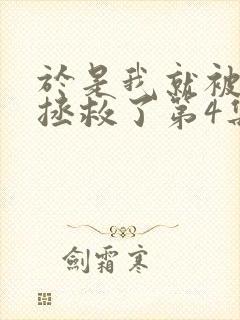 於是我就被
拯救了第4集
劍霜寒